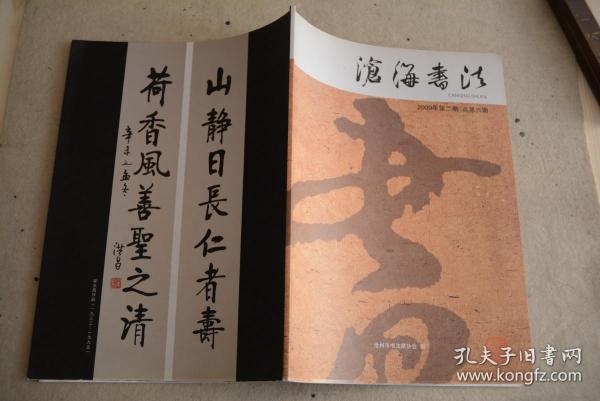 滄海书法
CANGHAI SHUFA
2009年第二期(总第六期
书
沧州市书法家协会 编
山静日長仁者壽
荷香風善聖之清
辛未之孟冬
洪昌
孔夫子旧书网
www.kongfz.com